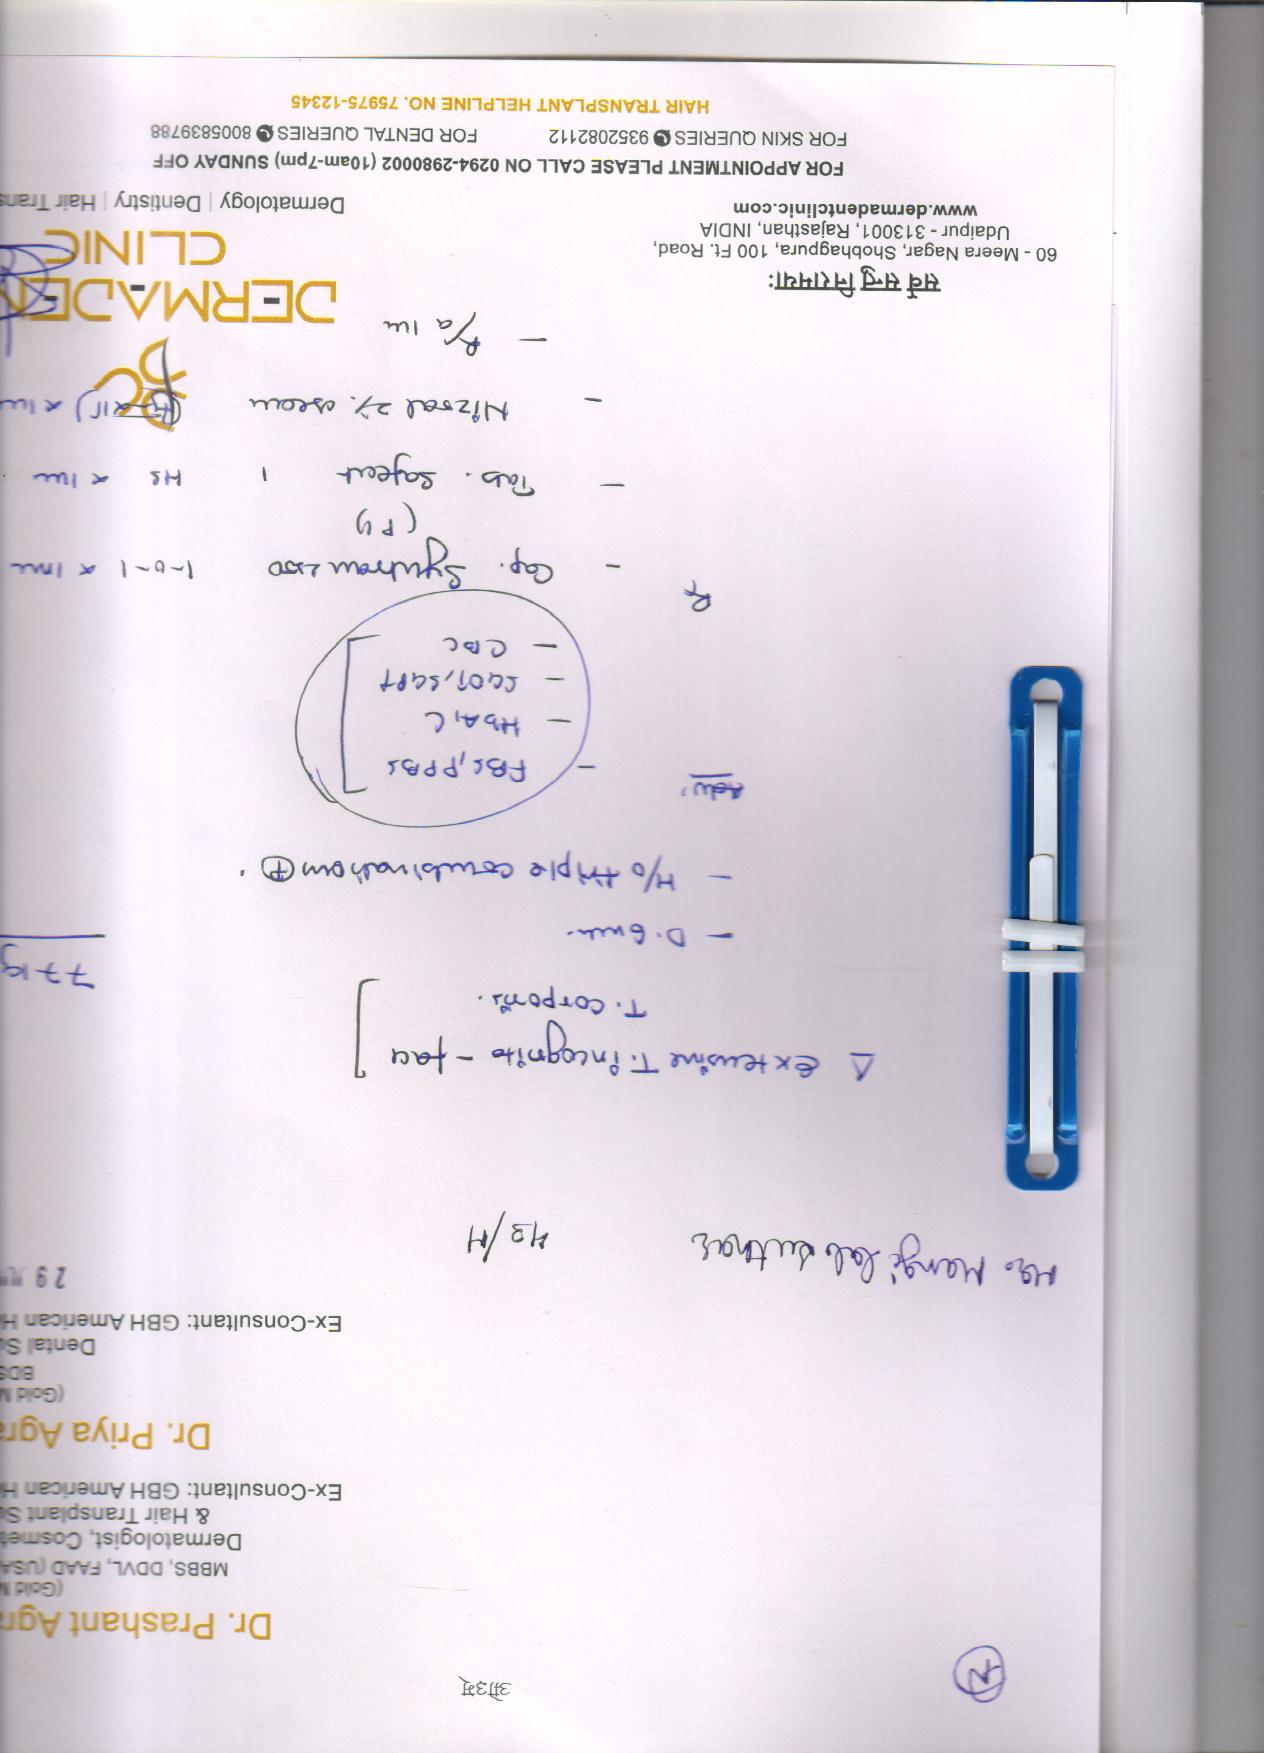 ओ३म्
N
Dr. Prashant Agra
(Gold M
MBBS, DDVL, FAAD (USA
Dermatologist, Cosmet
& Hair Transplant Su
Ex-Consultant: GBH American H
Dr. Priya Agra
(Gold M
BDS
Dental Su
Ex-Consultant: GBH American H
29 JUN
Mr. Mangi lal Suthar 43/M
Δ Extensive T. incognito - face
T. corporis.
77 kg
- D. 6 mth.
- H/o triple combination ⊕.
Adv.
- FBS, PPBS
- HbA1C
- SGOT, SGPT
- CBC
Rx
- Cap. 1-0-1 x 1m
- Tab. 1 HS x 1m
- Nizral 2% cream x 1m
- R/a 1m
सर्वे सन्तु निरामयाः
60 - Meera Nagar, Shobhagpura, 100 Ft. Road,
Udaipur - 313001, Rajasthan, INDIA
www.dermadentclinic.com
DC
DERMADEN
CLINIC
Dermatology | Dentistry | Hair Trans
FOR APPOINTMENT PLEASE CALL ON 0294-2980002 (10am-7pm) SUNDAY OFF
FOR SKIN QUERIES 9352082112 FOR DENTAL QUERIES 8005839788
HAIR TRANSPLANT HELPLINE NO. 75975-12345